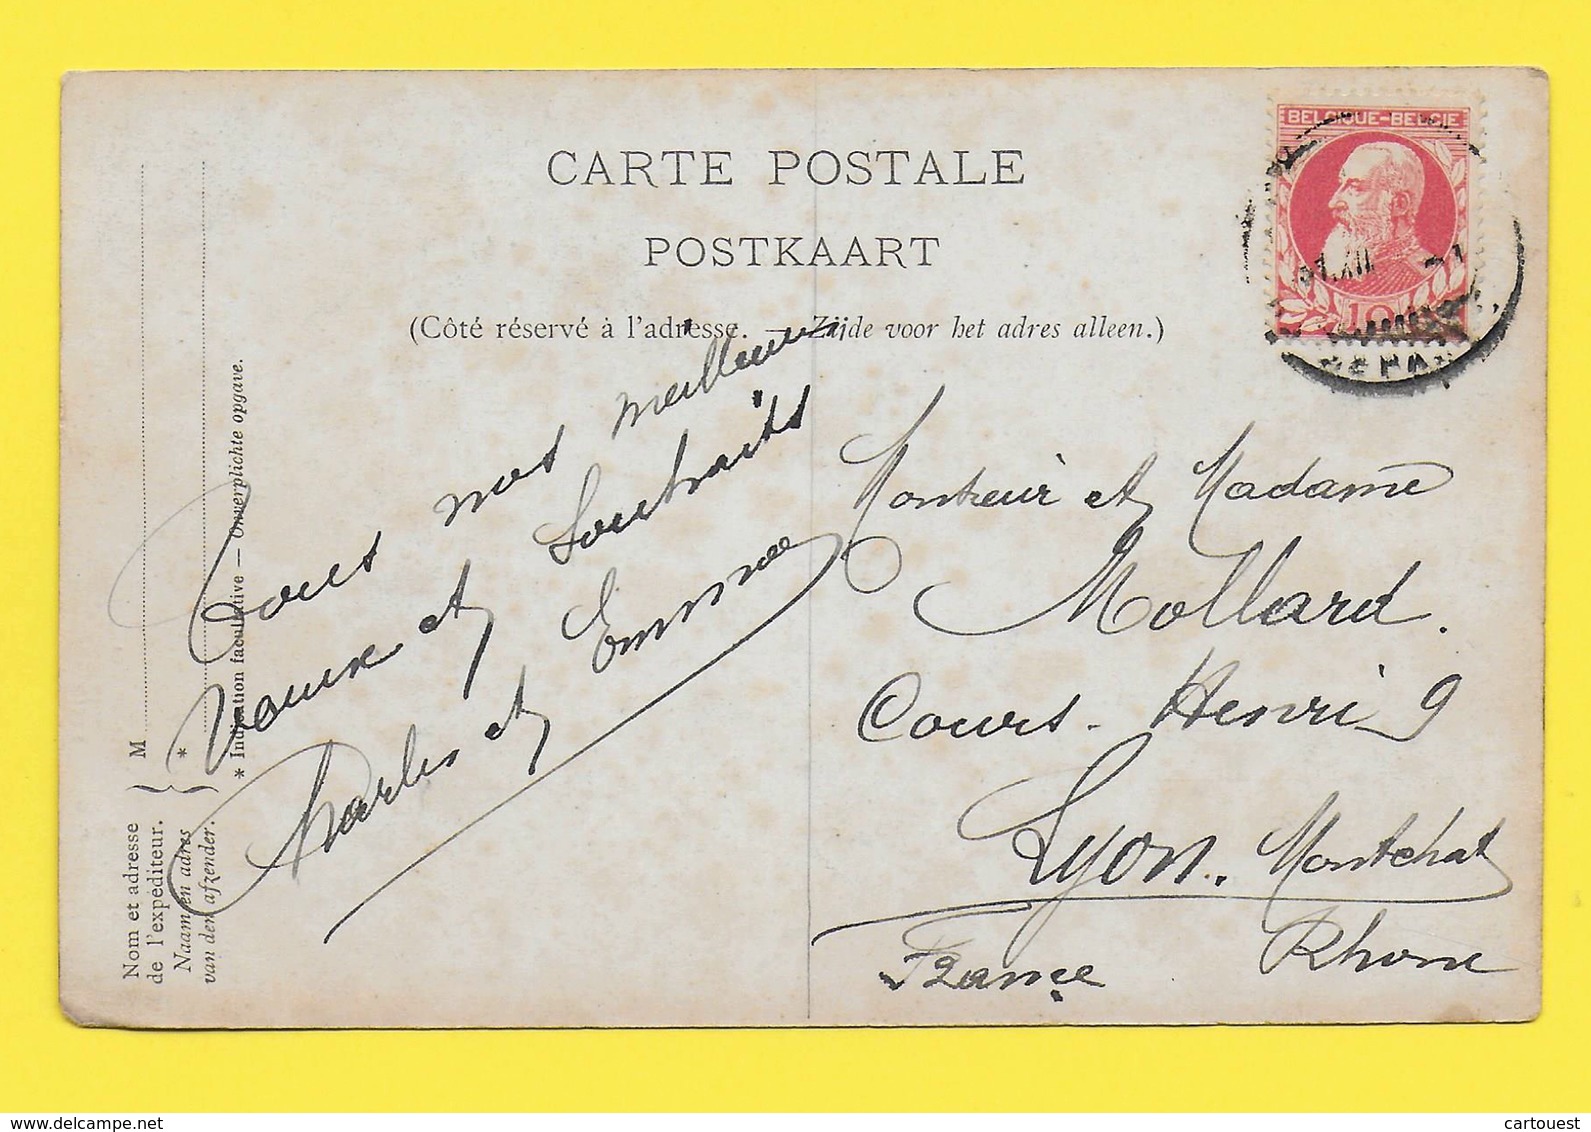 CARTE POSTALE
POSTKAART
(Côté réservé à l'adresse. — Zijde voor het adres alleen.)
BELGIQUE-BELGIE
10
Tous nos meilleurs
voeux et Souhaits
Charles et Emma
Monsieur et Madame
Mollard.
Cours - Henri 9
Lyon. Montchat
Rhone
France
Nom et adresse
de l'expéditeur.
Naam en adres
van den afzender.
M
*
* Indication facultative — Onverplichte opgave.
www.delcampe.net
cartouest